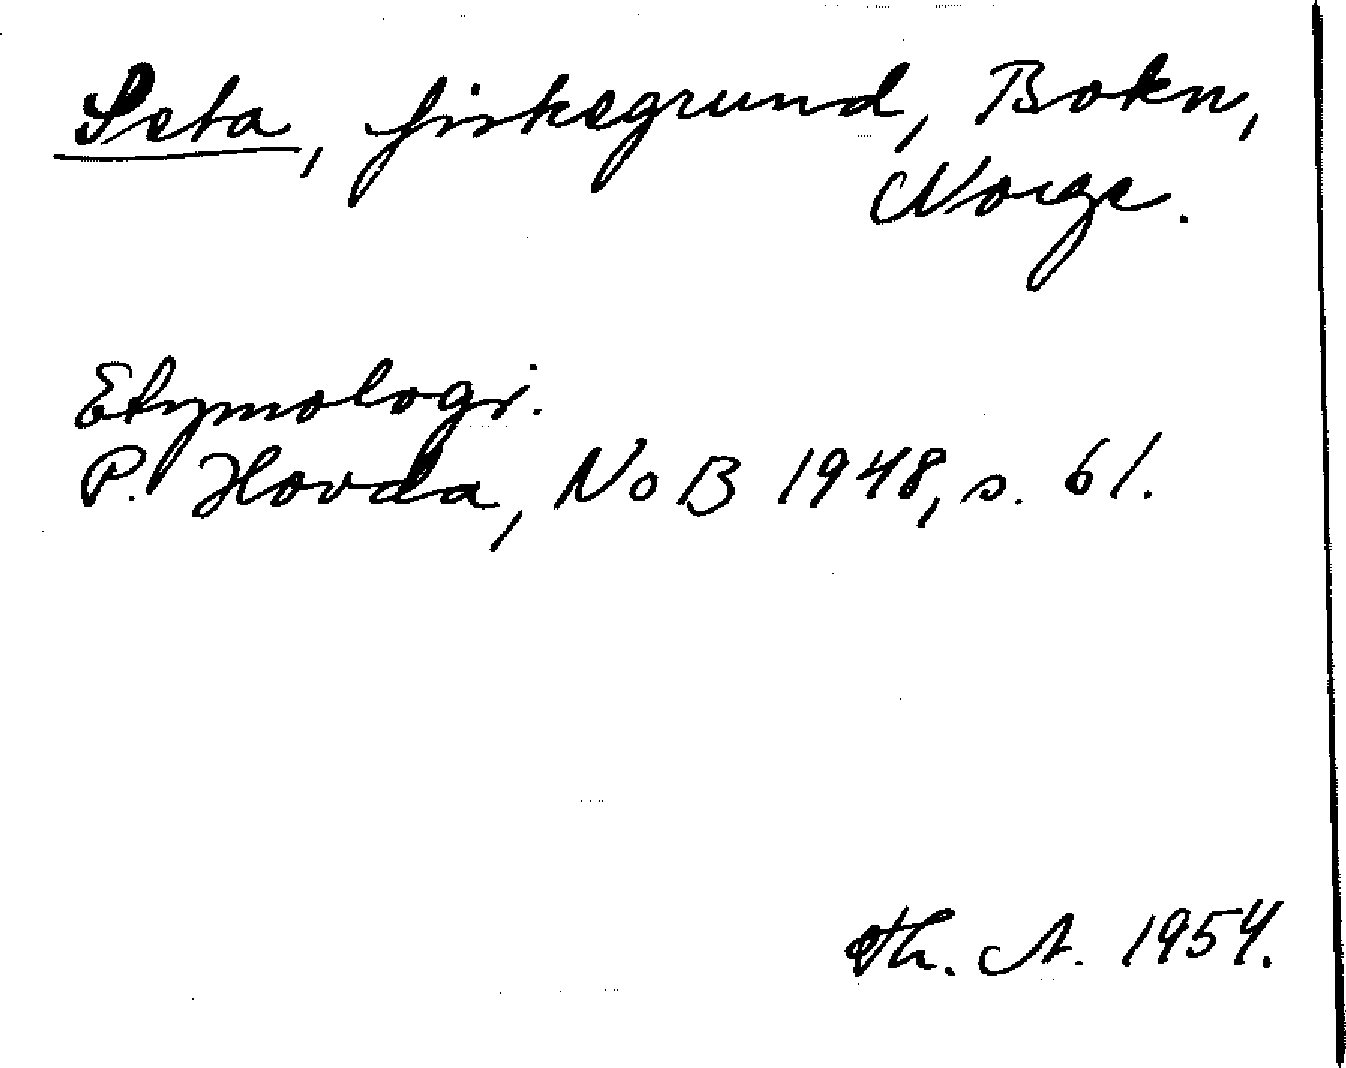 Seta, fiskegrund, Bokn,
Norge.
Etymologi.
P. Hovda, NoB 1948, s. 61.
Th. A. 1954.